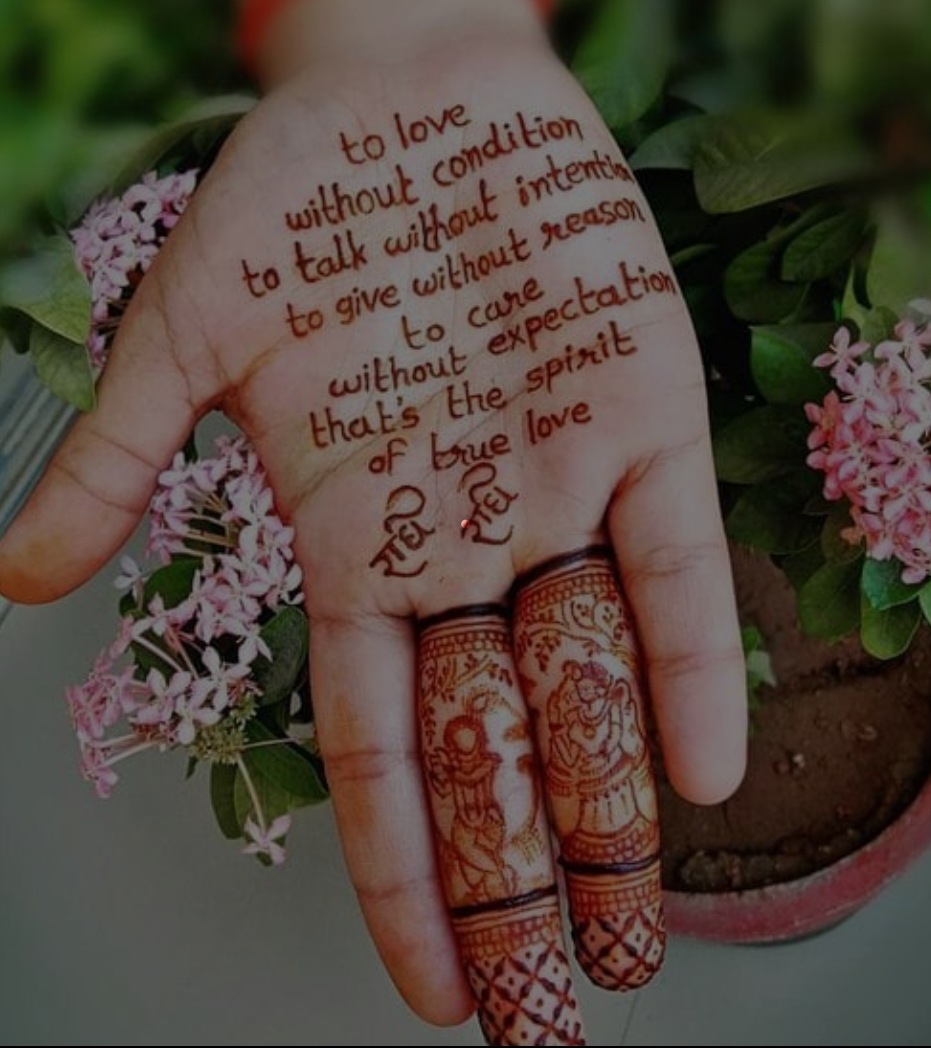 to love
without condition
to talk without intention
to give without reason
to care
without expectation
that's the spirit
of true love
राधे राधे